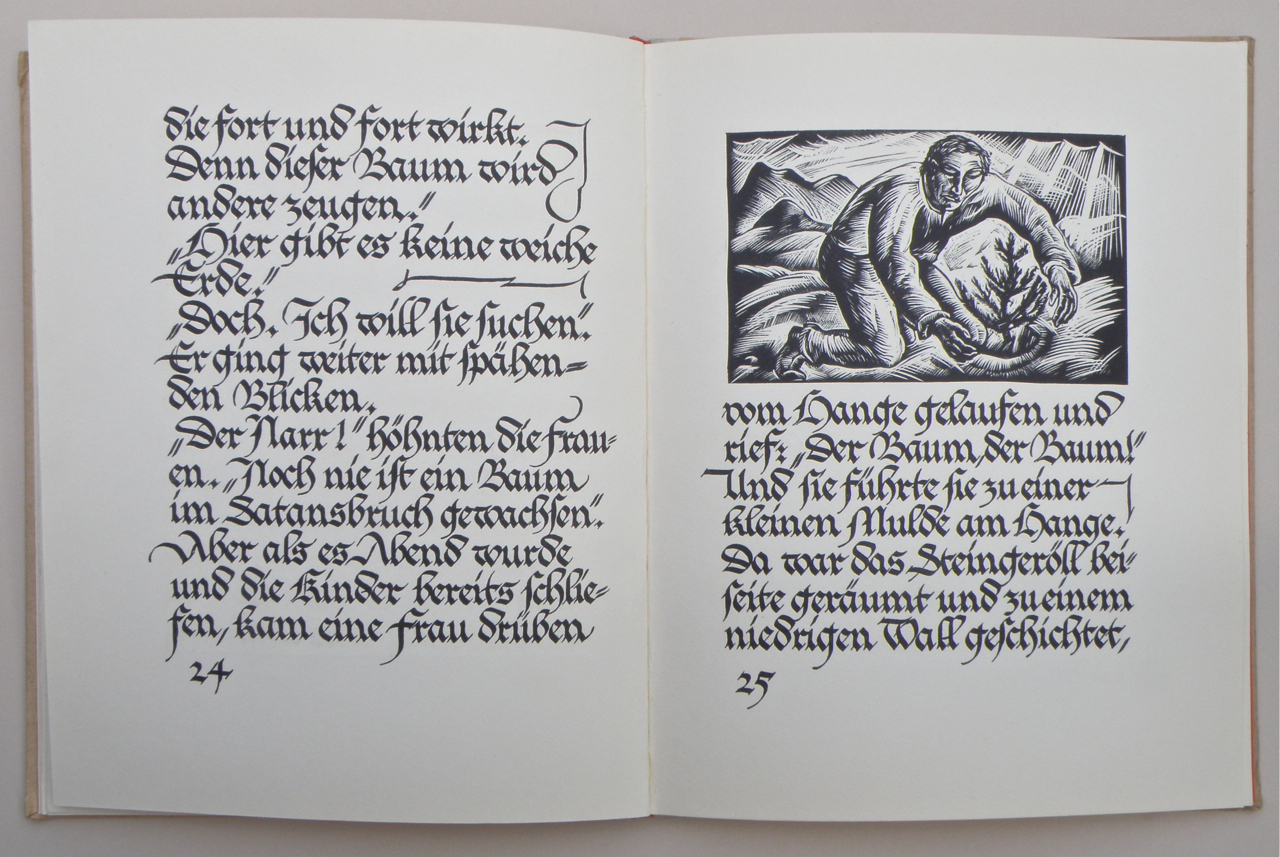 die fort und fort wirkt.
Denn dieser Baum wird
andere zeugen."
„Hier gibt es keine weiche
Erde."
„Doch. Ich will sie suchen".
Er ging weiter mit spähen=
den Blicken.
„Der Narr!" höhnten die Frau=
en. „Noch nie ist ein Baum
im Satansbruch gewachsen".
Aber als es Abend wurde
und die Kinder bereits schlie=
fen, kam eine Frau drüben
24
vom Hange gelaufen und
rief: „Der Baum, der Baum!"
Und sie führte sie zu einer
kleinen Mulde am Hange.
Da war das Steingeröll bei=
seite geräumt und zu einem
niedrigen Wall geschichtet,
25